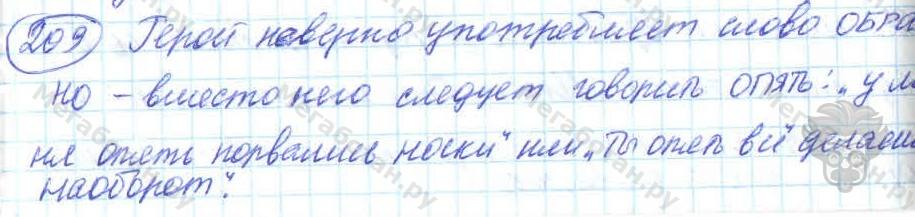 209 Герой неверно употребляет слово ОБРА
НО – вместо него следует говорить ОПЯТЬ: „У м
ня опять порвались носки" или „Ты опять всё делаешь
наоборот".